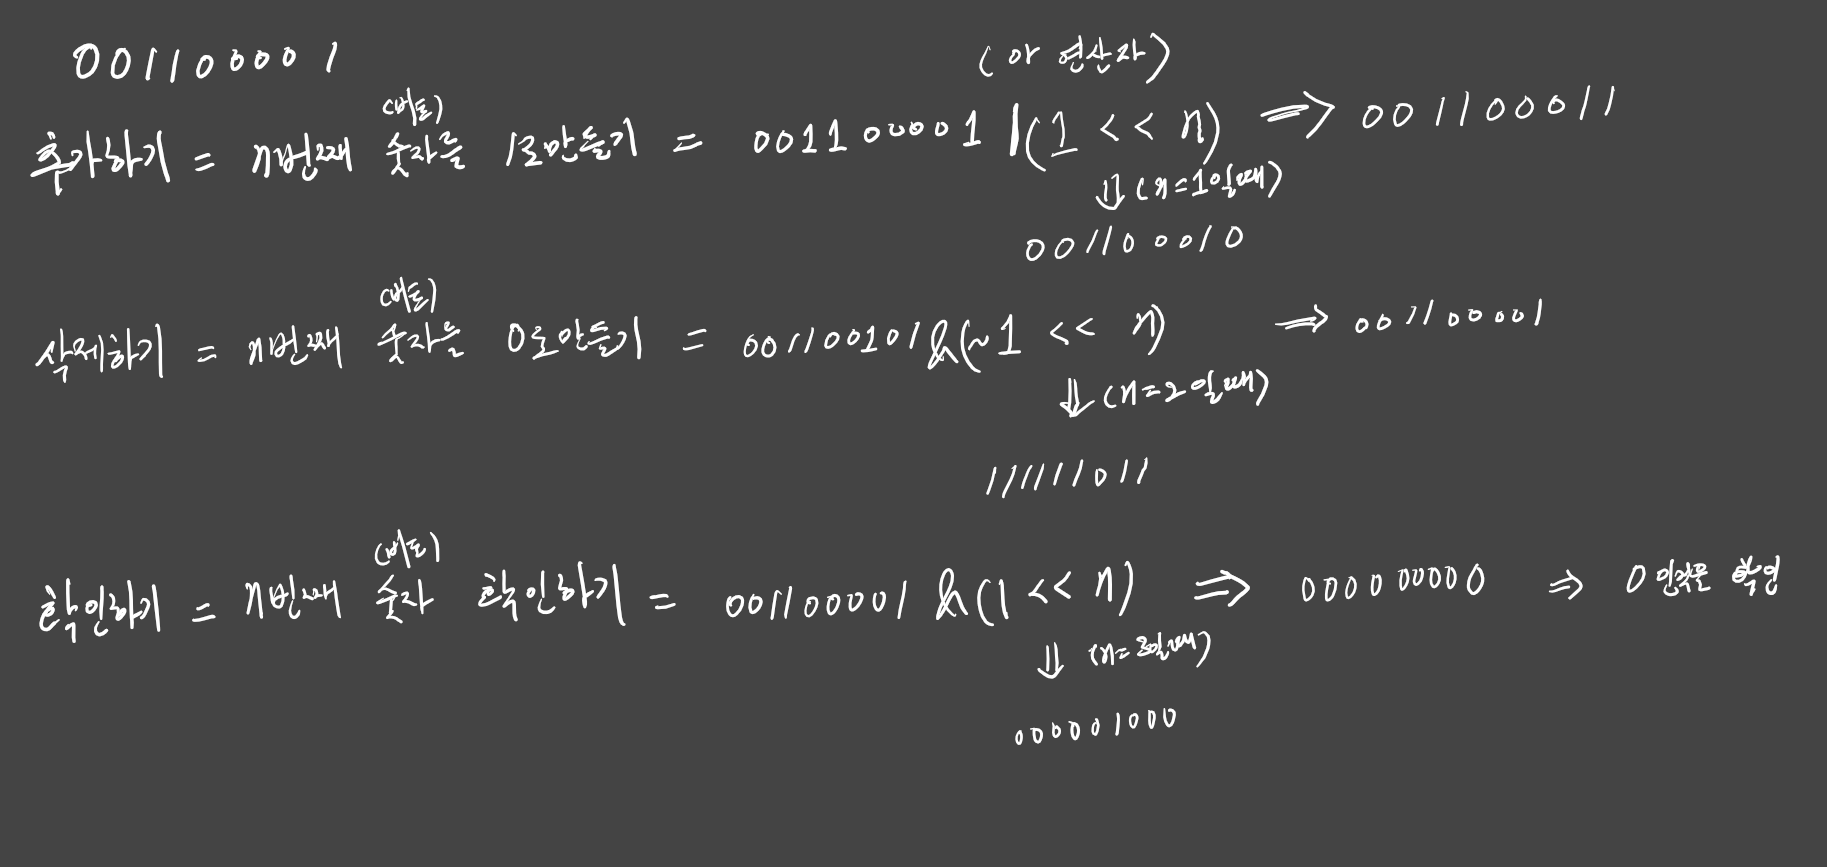 001100001
(or 연산자)
(비트)
추가하기 = n번째 숫자를 1로만들기 = 001100001 | (1 << n) ⇒ 001100011
⇓ (n=1일때)
001100010
(비트)
삭제하기 = n번째 숫자를 0로만들기 = 001100101 & (~1 << n) ⇒ 001100001
⇓ (n=2일때)
111111011
(비트)
확인하기 = n번째 숫자 확인하기 = 001100001 & (1 << n) ⇒ 000000000 ⇒ 0 확인
⇓ (n=3일때)
000001000